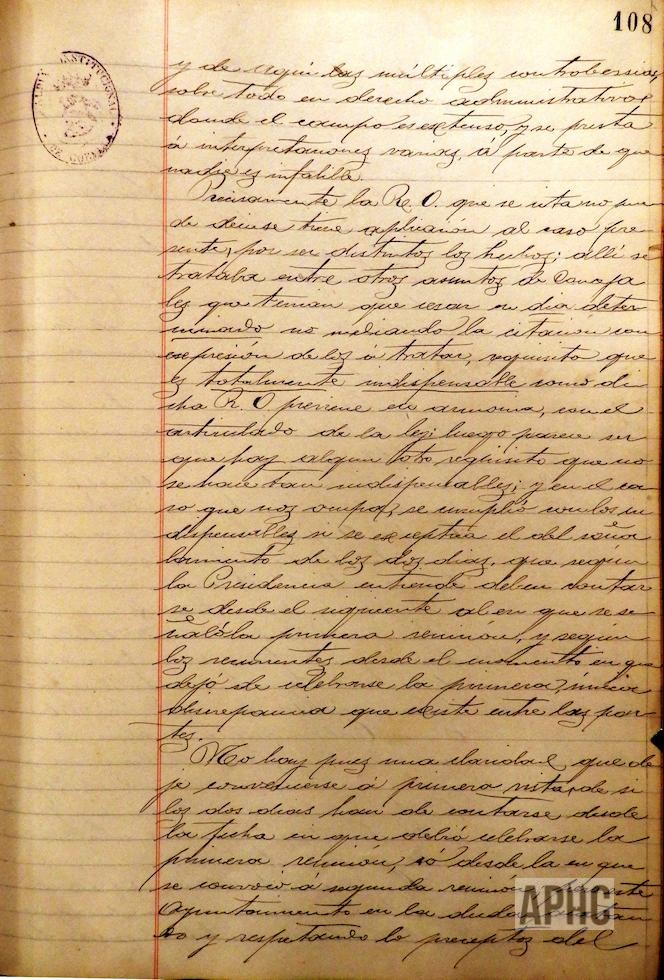 108
y de aquí las múltiples controbersias
sobre todo en derecho administrativo
donde el campo es extenso, y se presta
á interpretaciones varias, á parte de que
nadie es infalible.
Precisamente la R. O. que se cita no pue
de decirse tiene aplicación al caso pre
sente, por ser distintos los hechos; allí se
trataba entre otros asuntos de Conceja
les que tenían que cesar en día deter
minado no mediando la citación con
expresión de los á tratar, requisito que
es totalmente indispensable como di
cha R. O previene en armonía, con el
articulado de la ley; luego parece ser
que hay algún otro requisito que no
se hace tan indispensable; y en el ca
so que nos ocupa, se cumplió con los in
dispensables si se exceptua el del seña
lamiento de los dos días, que según
la Presidencia entiende deben contar
se desde el siguiente al en que se se
ñaló la primera reunión, y según
los recurrentes desde el momento en que
dejó de celebrarse la primera, única
discrepancia que existe entre las par
tes.
No hay pues una claridad que de
je convencerse á primera vista, de si
los dos días han de contarse desde
la fecha en que debió celebrarse la
primera reunión, ó desde la en que
se convocó á segunda reunión
Ayuntamiento en la duda
do y respetando lo preceptos del
APHC